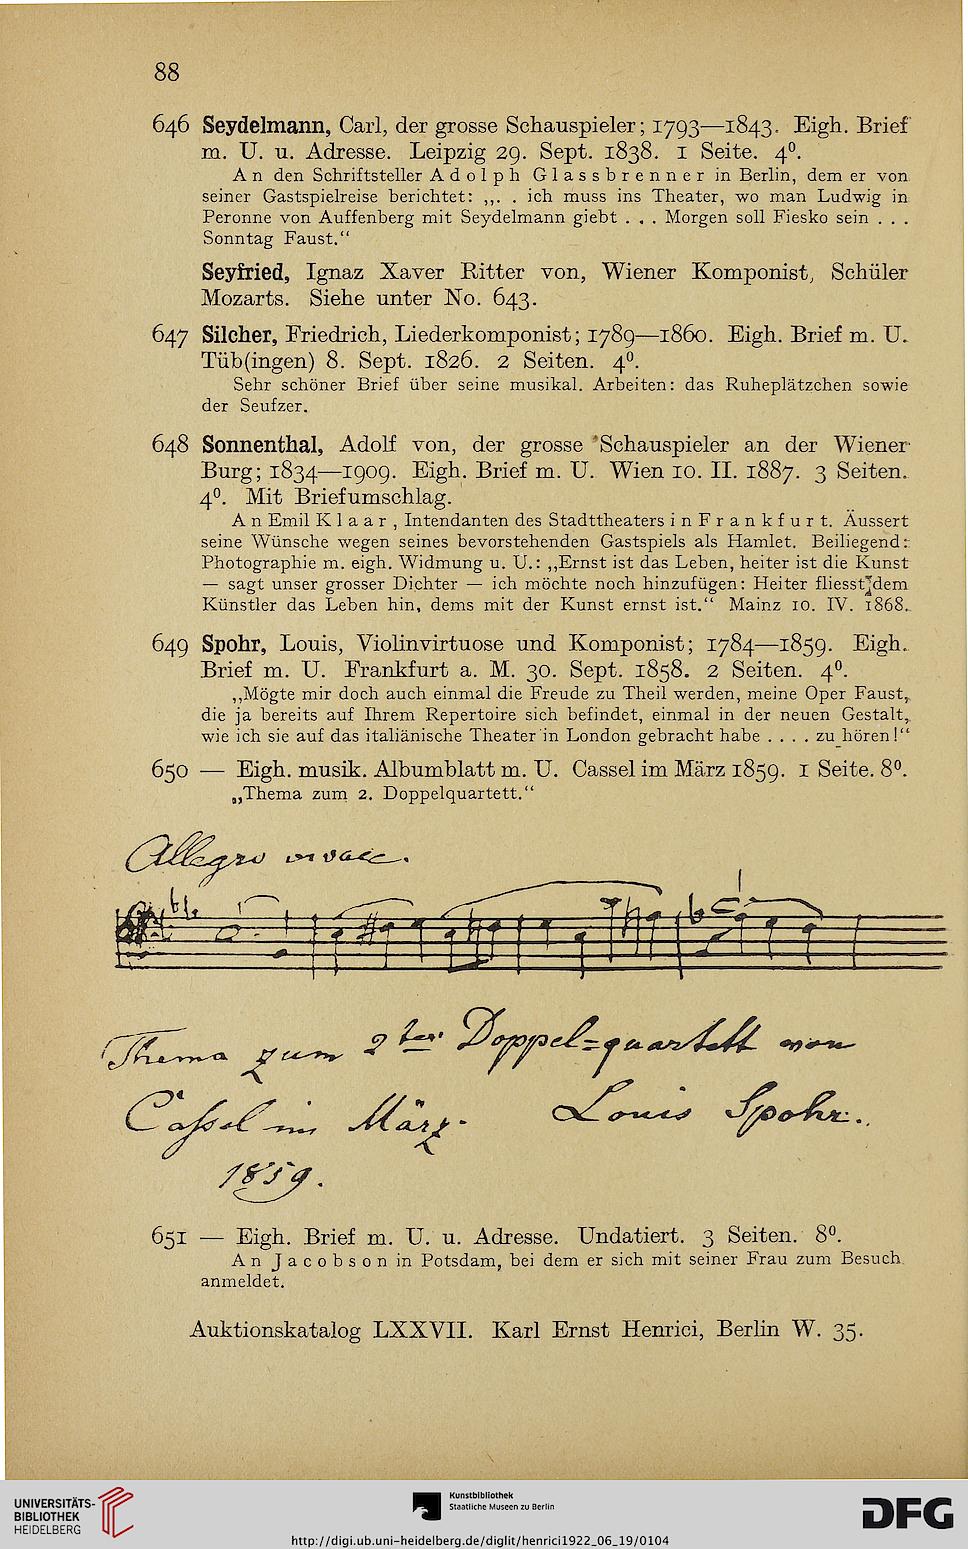 88
646 Seydelmann, Carl, der grosse Schauspieler; 1793—1843. Eigh. Brief
m. U. u. Adresse. Leipzig 29. Sept. 1838. 1 Seite. 4⁰.
An den Schriftsteller Adolph Glassbrenner in Berlin, dem er von
seiner Gastspielreise berichtet: „. . ich muss ins Theater, wo man Ludwig in
Peronne von Auffenberg mit Seydelmann giebt . . . Morgen soll Fiesko sein . . .
Sonntag Faust.“
Seyfried, Ignaz Xaver Ritter von, Wiener Komponist, Schüler
Mozarts. Siehe unter No. 643.
647 Silcher, Friedrich, Liederkomponist; 1789—1860. Eigh. Brief m. U.
Tüb(ingen) 8. Sept. 1826. 2 Seiten. 4⁰.
Sehr schöner Brief über seine musikal. Arbeiten: das Ruheplätzchen sowie
der Seufzer.
648 Sonnenthal, Adolf von, der grosse Schauspieler an der Wiener
Burg; 1834—1909. Eigh. Brief m. U. Wien 10. II. 1887. 3 Seiten.
4⁰. Mit Briefumschlag.
An Emil Klaar, Intendanten des Stadttheaters in Frankfurt. Äussert
seine Wünsche wegen seines bevorstehenden Gastspiels als Hamlet. Beiliegend:
Photographie m. eigh. Widmung u. U.: „Ernst ist das Leben, heiter ist die Kunst
— sagt unser grosser Dichter — ich möchte noch hinzufügen: Heiter fliesst dem
Künstler das Leben hin, dems mit der Kunst ernst ist.“ Mainz 10. IV. 1868.
649 Spohr, Louis, Violinvirtuose und Komponist; 1784—1859. Eigh.
Brief m. U. Frankfurt a. M. 30. Sept. 1858. 2 Seiten. 4⁰.
„Mögte mir doch auch einmal die Freude zu Theil werden, meine Oper Faust,
die ja bereits auf Ihrem Repertoire sich befindet, einmal in der neuen Gestalt,
wie ich sie auf das italiänische Theater in London gebracht habe . . . . zu hören!“
650 — Eigh. musik. Albumblatt m. U. Cassel im März 1859. 1 Seite. 8⁰.
„Thema zum 2. Doppelquartett.“
Allegro vivace.
Thema zum 2ten Doppel=quartett von
Cassel im März. Louis Spohr.
1859.
651 — Eigh. Brief m. U. u. Adresse. Undatiert. 3 Seiten. 8⁰.
An Jacobson in Potsdam, bei dem er sich mit seiner Frau zum Besuch
anmeldet.
Auktionskatalog LXXVII. Karl Ernst Henrici, Berlin W. 35.
UNIVERSITÄTS-
BIBLIOTHEK
HEIDELBERG
Kunstbibliothek
Staatliche Museen zu Berlin
DFG
http://digi.ub.uni-heidelberg.de/diglit/henrici1922_06_19/0104